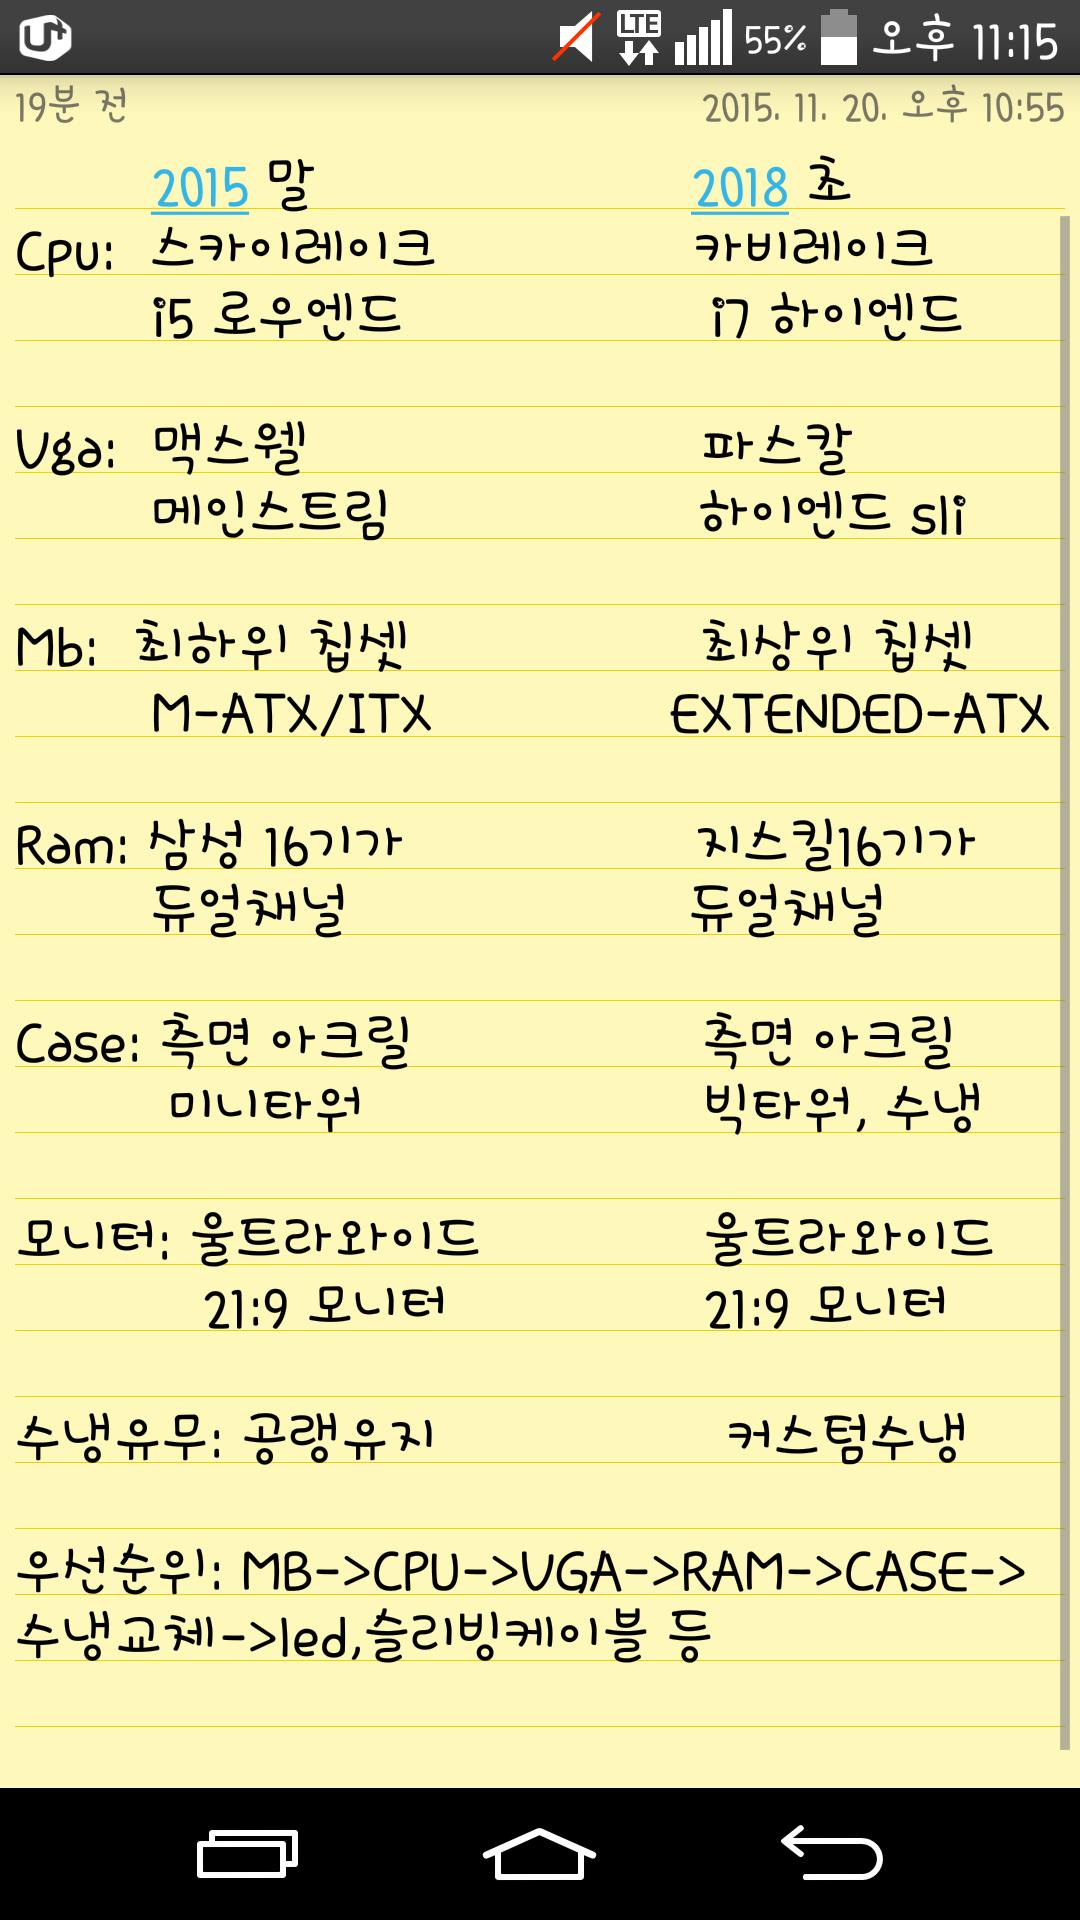 U+ LTE 55% 오후 11:15
19분 전 2015. 11. 20. 오후 10:55
2015 말 2018 초
Cpu: 스카이레이크 카비레이크
i5 로우엔드 i7 하이엔드
Vga: 맥스웰 파스칼
메인스트림 하이엔드 sli
Mb: 최하위 칩셋 최상위 칩셋
M-ATX/ITX EXTENDED-ATX
Ram: 삼성 16기가 지스킬16기가
듀얼채널 듀얼채널
Case: 측면 아크릴 측면 아크릴
미니타워 빅타워, 수냉
모니터: 울트라와이드 울트라와이드
21:9 모니터 21:9 모니터
수냉유무: 공랭유지 커스텀수냉
우선순위: MB->CPU->VGA->RAM->CASE->
수냉교체->led,슬리빙케이블 등